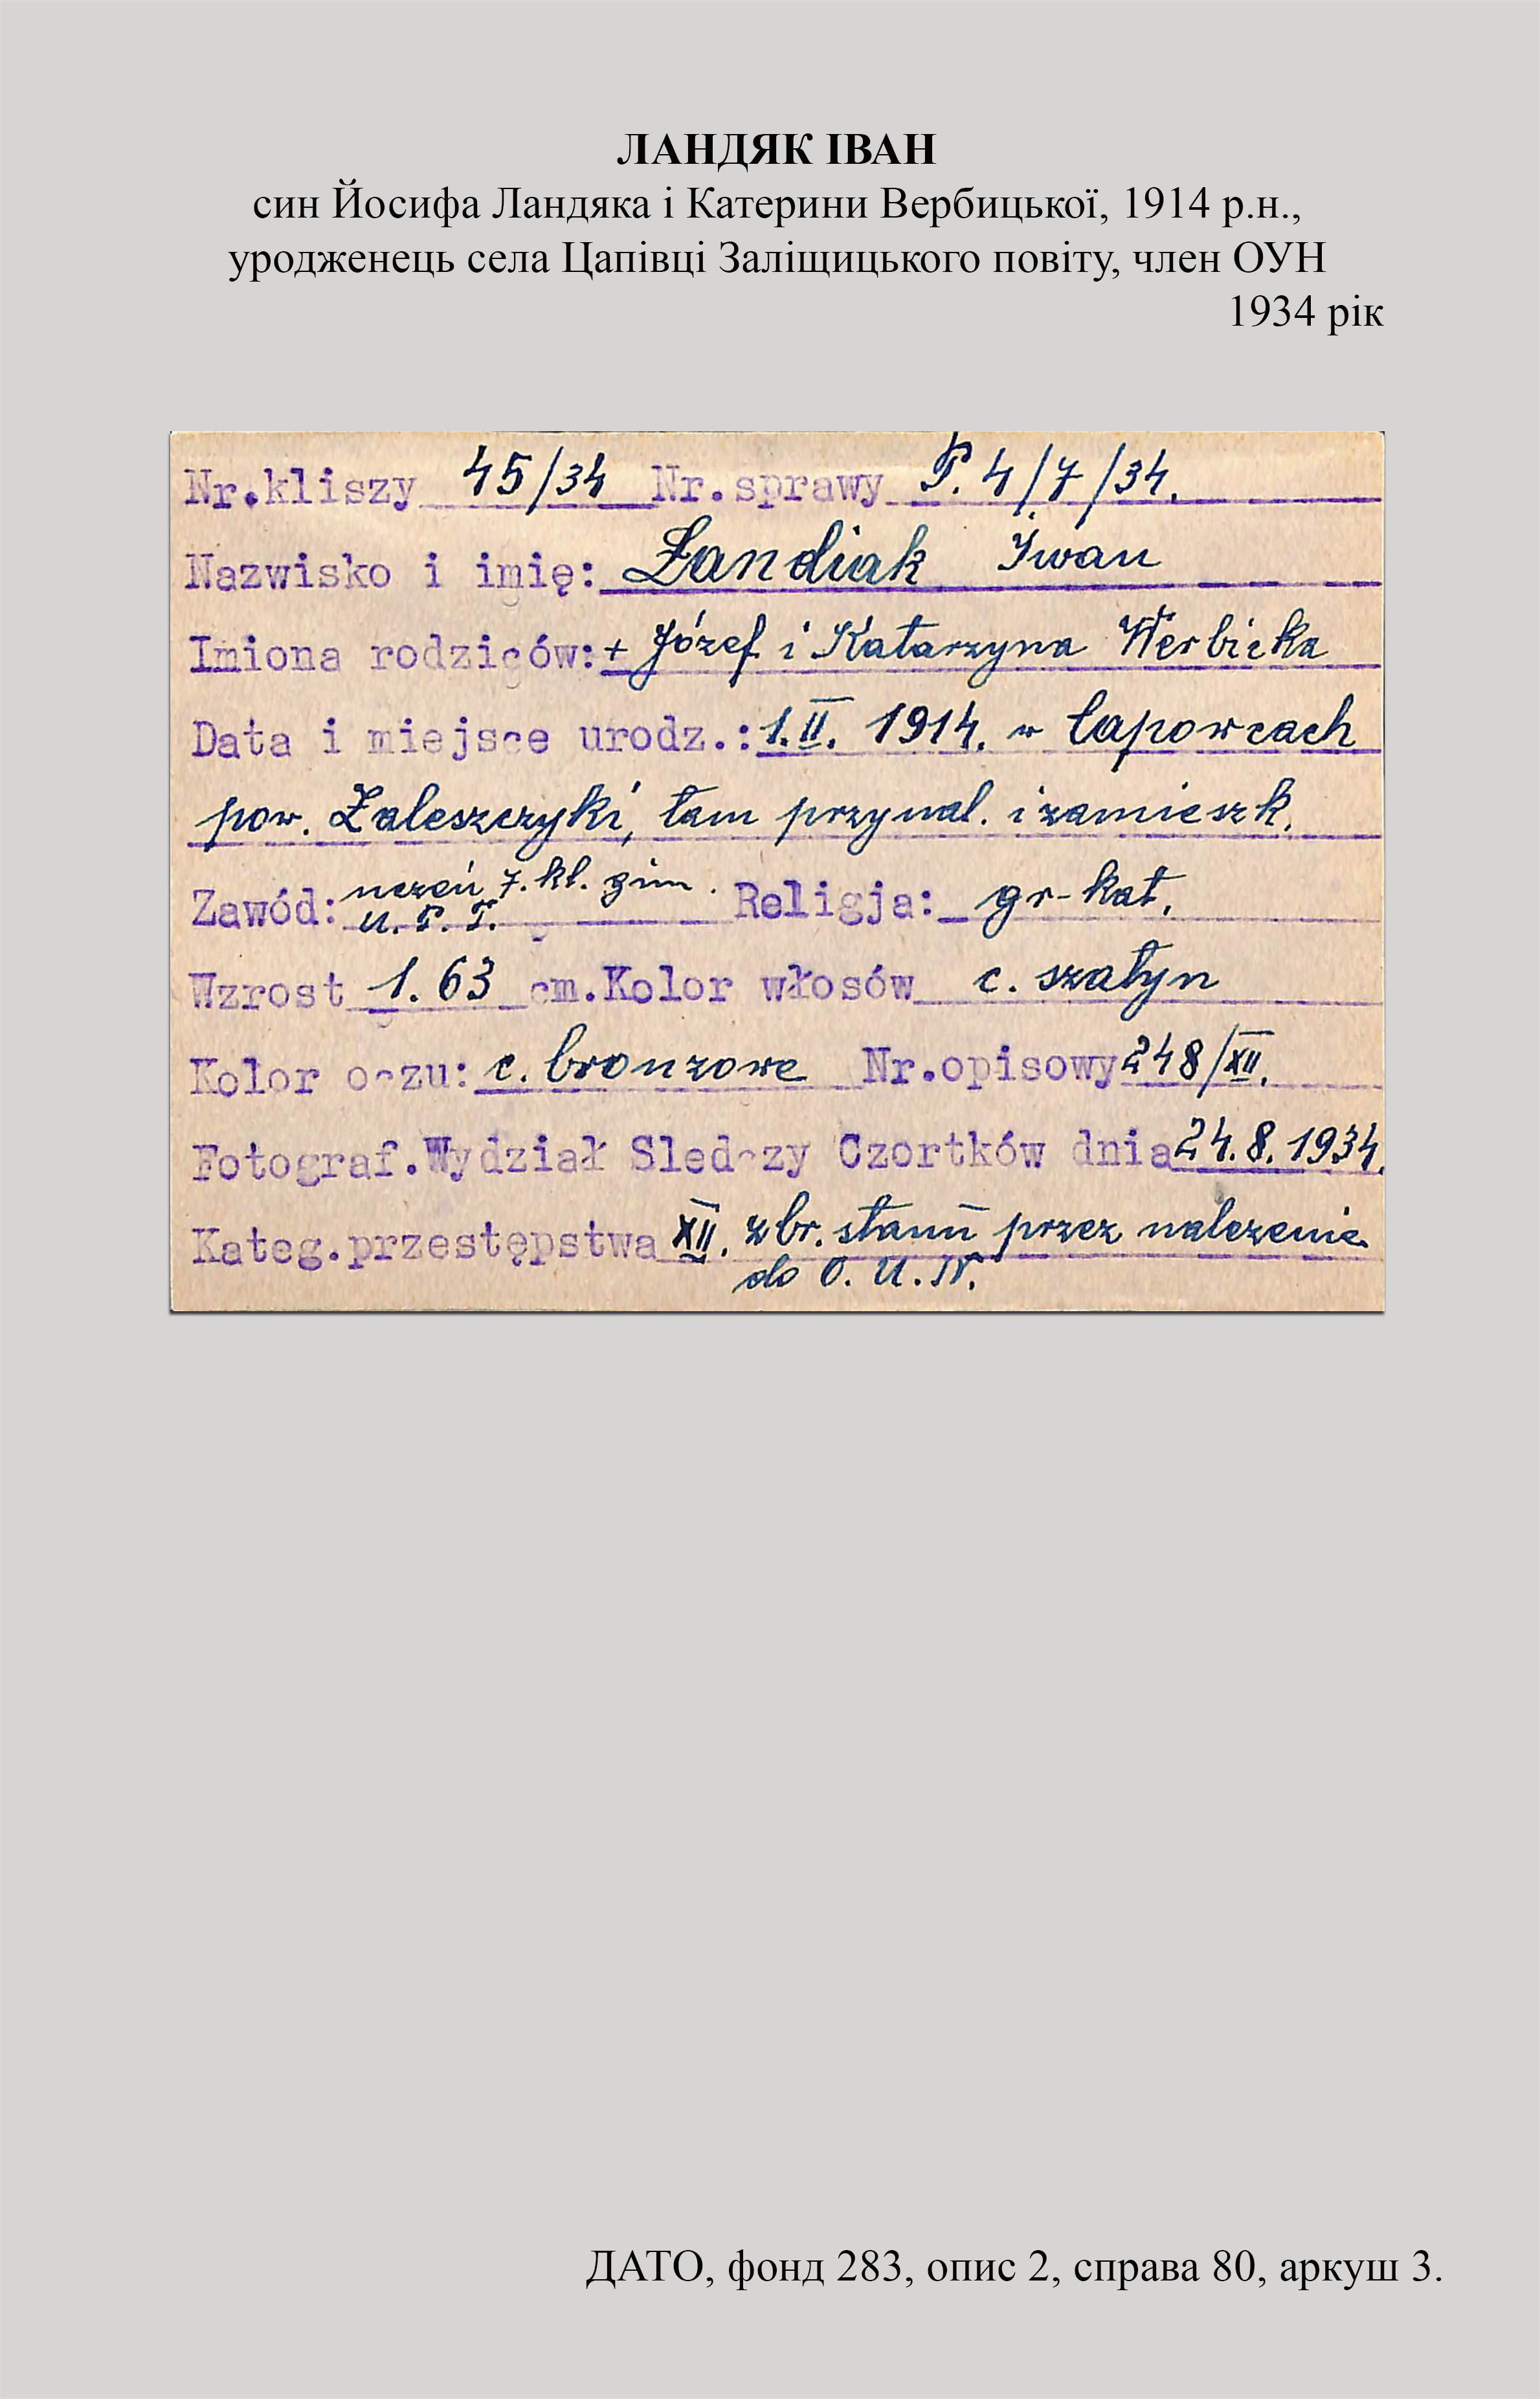 ЛАНДЯК ІВАН
син Йосифа Ландяка і Катерини Вербицької, 1914 р.н.,
уродженець села Цапівці Заліщицького повіту, член ОУН
1934 рік
Nr.kliszy 45/34 Nr.sprawy P. 4/7/34.
Nazwisko i imię: Łandiak Iwan
Imiona rodziców: + Józef i Katarzyna Werbicka
Data i miejsce urodz.: 1.II. 1914. w Capowcach
pow. Zaleszczyki, tam przynal. i zamieszk.
Zawód: uczeń 7. kl. gim. Religja: gr-kat.
U. P. T.
Wzrost 1.63 cm. Kolor włosów c. szatyn
Kolor oczu: c. bronzowe Nr.opisowy 248/XII.
Fotograf.Wydział Sledczy Czortków dnia 24.8.1934.
Kateg.przestępstwa XII. zbr. stanu przez należenie
do O. U. N.
ДАТО, фонд 283, опис 2, справа 80, аркуш 3.